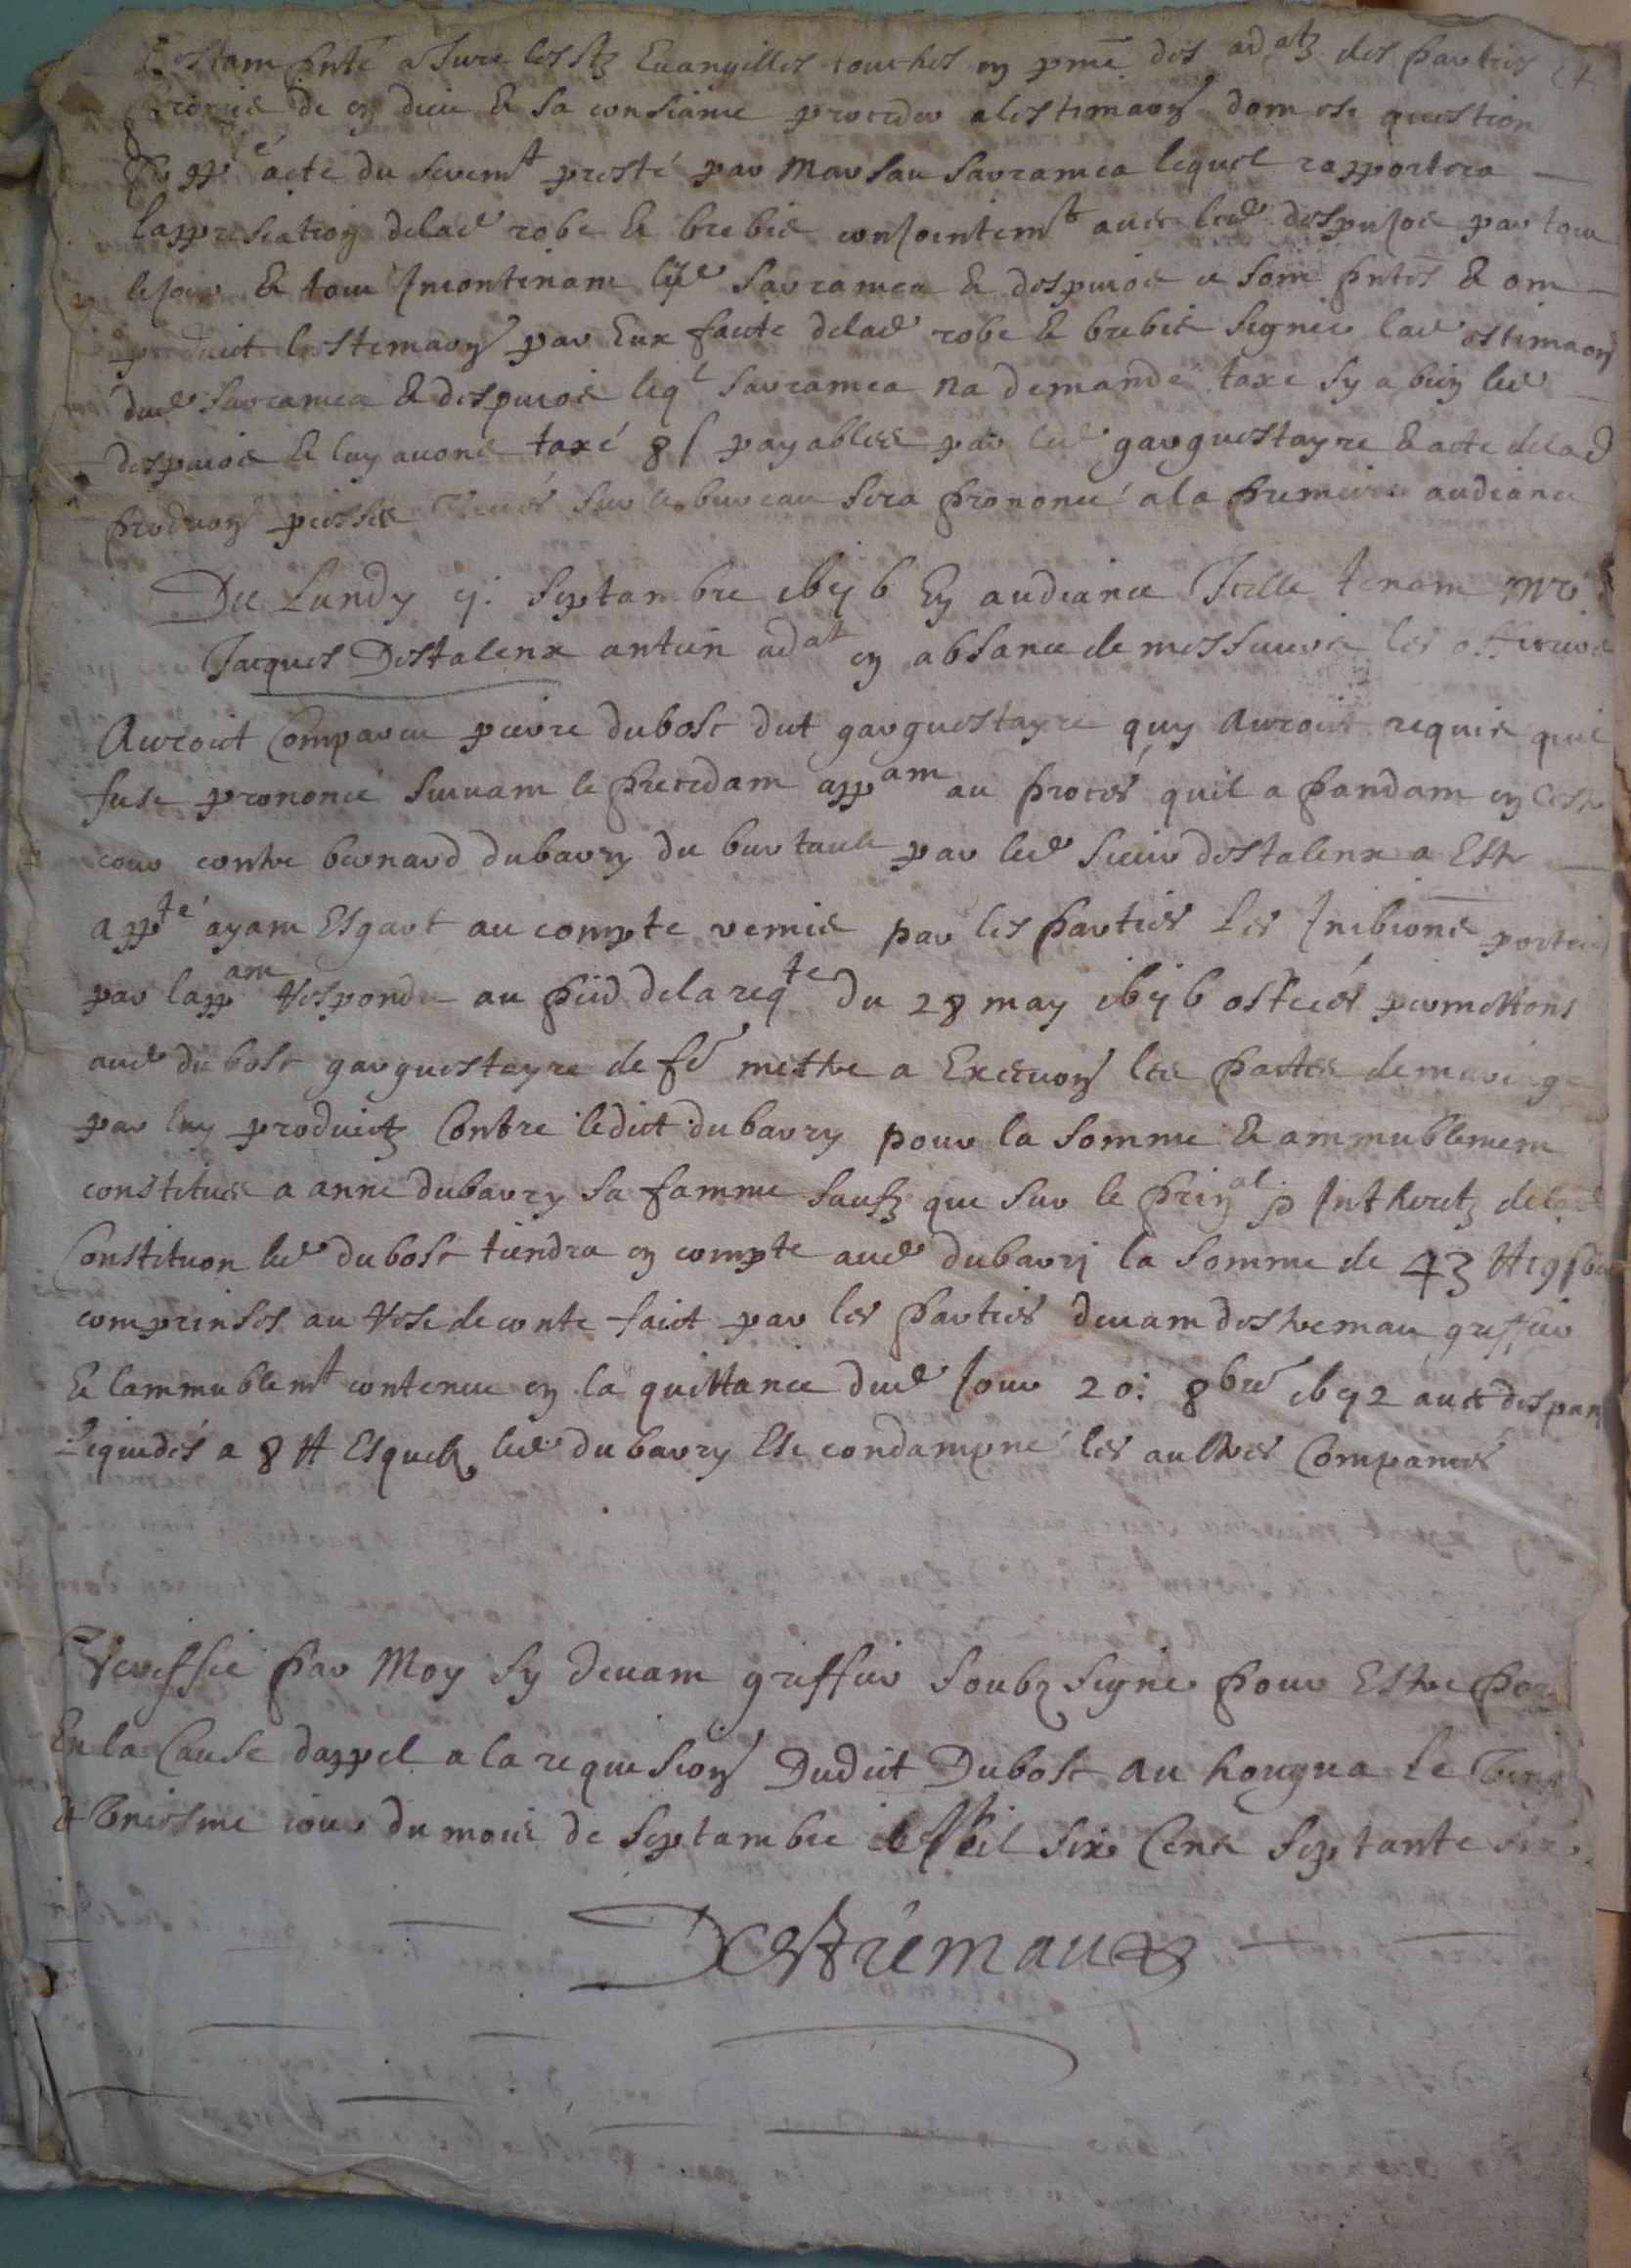 Estant pnte a Juré les stz Euangilles touchés en pnce des adatz des parties et
promis de en dieu & sa consiance proceder a lestimaon dont est question
& appé acte du seremt presté par Marsau Sarramea lequel rapportera
lappresiation delad robe & brebis conjointemt auec led despujos par tout
le jour & tout Incontinant lesd Sarramea & despuios se sont pntés & ont
produit lestimaon par Eux faite delad robe & brebis signée lad estimaon
dud Sarramea & despuios leql Sarramea na demandé taxe sy a bien led
despuios & luy auons taxé 8 s payables par led garguestayre & acte delad
produon piesses sur le bureau sera prononcé a la premiere audiance
Du Lundy 7: Septambre 1676 En audiance Icelle tenant Mre
Jacques Destalenx antien adat en absance de messieurs les officiers
Auroit Comparu pierre dubosc dit garguestayre quy auroit requis quil
fust prononcé suiuant le precedant appant au procés quil a pandant en ceste
cour contre bernard dubarry du burtaule par led sieur destalenx a Esté
appté ayant Esgart au compte remis par les parties les Inibions portées
par lappant respondu au pied dela reqte du 28 may 1676 ostées permettons
aud dubosc garguestayre de fe mettre a Execuon les pactes de mariage
par luy produictz Contre ledit dubarry pour la somme & ammublement
constitués a anne dubarry sa famme saufz que sur le prinal & Inthéretz delad
Constituon led dubosc tiendra en compte aud dubarry la somme de 43 ₶
comprinses au reste de conte faict par les parties deuant destremau greffier
& lammublemt contenue en la quittance dud Jour 20: 8bre 1672 auec despans
liquidés a 8 ₶ Esquelz led dubarry Est condampné les aultres Compancés
Veriffié par Moy sy deuant greffier soubzsigné pour Estre
En la Cause dappel a la requisiõn Dudit Dubosc au hougua le vingt
& vniesme iour du mois de Septambre Mil six Cens septante six
Destrémaux